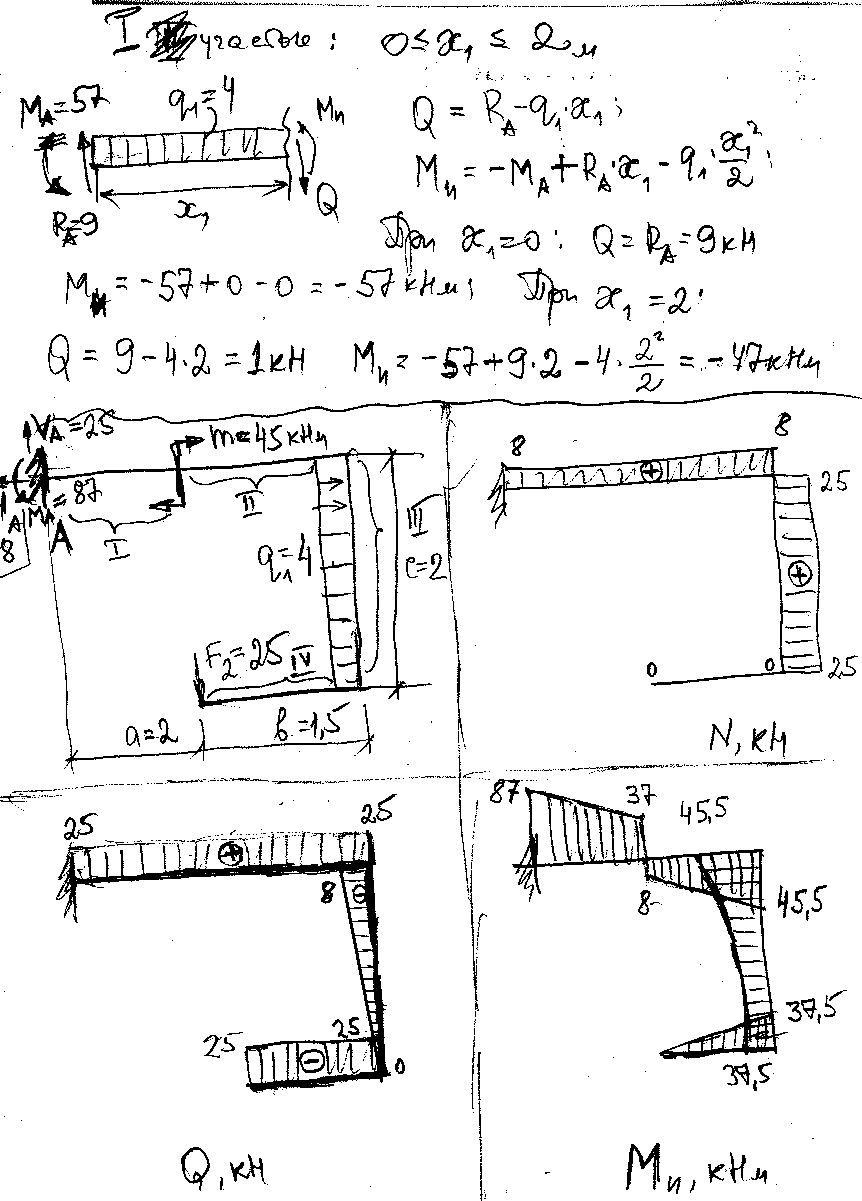 I участок: 0 ≤ x₁ ≤ 2м
M_A=57 q₁=4 M_и Q = R_A - q₁·x₁;
M_и = -M_A + R_A·x₁ - q₁·x₁²/2;
x₁ Q
R_A=9 При x₁=0: Q = R_A = 9кН
M_и = -57+0-0 = -57кНм; При x₁=2:
Q = 9-4·2 = 1кН M_и = -57+9·2-4·2²/2 = -47кНм
V_A=25 m=45кНм
M_A=87
A
8
A
I II III
q₁=4 c=2
F₂=25 IV
a=2 b=1,5
8 8
25
+
0 0 25
N, кН
25 25
+
8 -
25 25
- 0
Q, кН
87 37 45,5
8 45,5
37,5
37,5
M_и, кНм